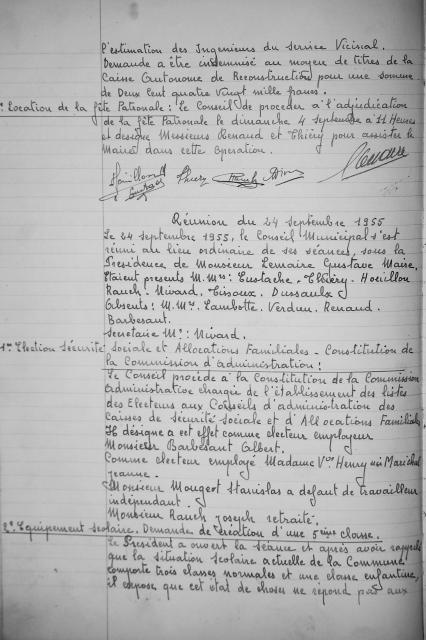 l'estimation des Ingenieurs du Service Vicinal.
Demande a être indemnisé au moyen de titres de la
Caisse Autonome de Reconstruction pour une somme
de Deux cent quatre vingt mille francs.
Location de la fête Patronale : le Conseil de proceder a l'adjudication
de la fête Patronale le dimanche 4 septembre a 11 Heures
et designe Messieurs Renaud et Thiéry pour assister le
Maire dans cette operation.
Thiery Rauch
Lemaire
Réunion du 24 septembre 1955
Le 24 septembre 1955, le Conseil Municipal s'est
réuni au lieu ordinaire de ses séances, sous la
Presidence de Monsieur Lemaire Gustave Maire,
Etaient presents M.Mrs : Eustache, Thiéry - Hoeillon
Rauch - Nivard, Cisoux, Dussaulx
Absents : M.Mrs. Lambotte, Verdun, Renaud,
Barbesant.
secretaire Mr : Nivard.
1º Election Sécurité sociale et Allocations Familiales - Constitution de
la Commission d'Administration :
Le Conseil procède a la Constitution de la Commission
administrative chargée de l'établissement des listes
des Electeurs aux Conseils d'administration des
caisses de sécurité sociale et d'Allocations Familiales
Il désigne a cet effet comme electeur employeur
Monsieur Barbesant Albert.
Comme electeur employé Madame Vve Henry née Maréchal
Jeanne.
Monsieur Mougeot Stanislas a defaut de travailleur
indépendant.
Monsieur Rauch Joseph retraité.
2º Equipement scolaire. Demande de création d'une 5ème classe.
Le President a ouvert la séance et après avoir rappelé
que la situation scolaire actuelle de la Commune
comporte trois classes normales et une classe enfantine,
il expose que cet etat de choses ne repond pas aux